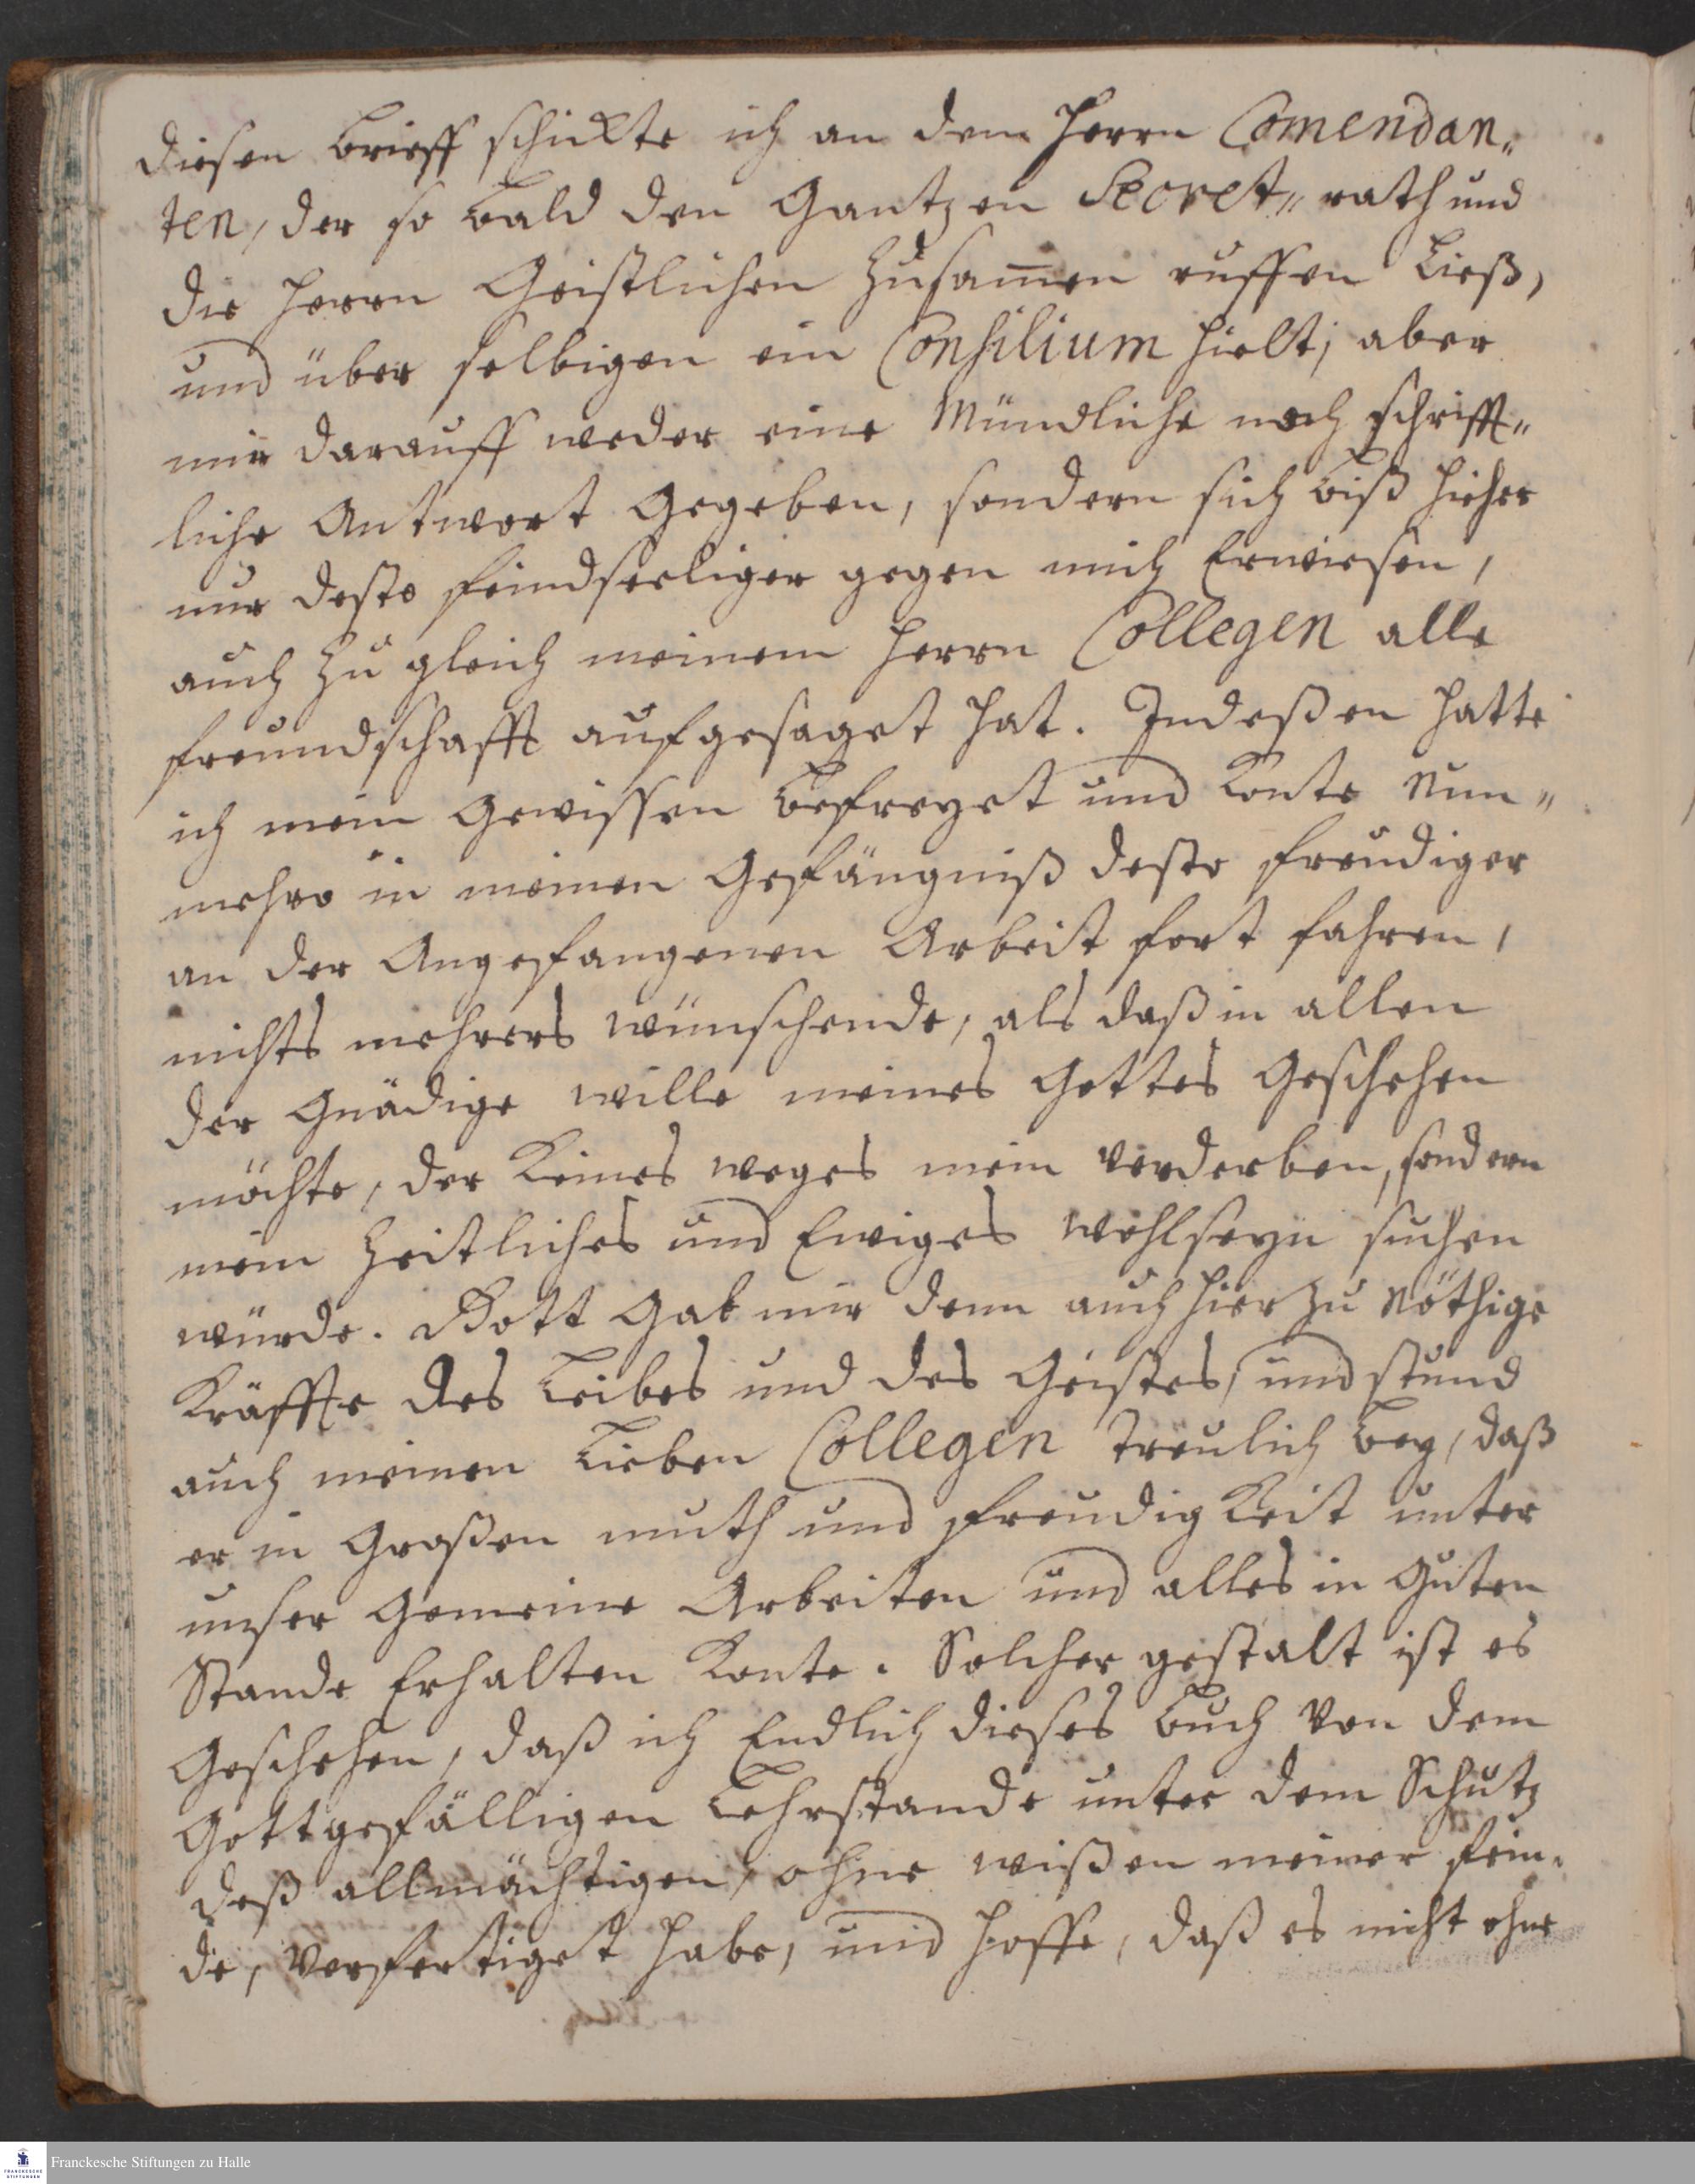 diesen brieff schickte ich an dem Herrn Comendan„
ten, der so bald den Gantzen Secret„ rath und
die Herrn Geistlichen Zusam̄en ruffen Ließ,
und über selbigen ein Consilium hielt; aber
mir darauff weder eine Mündliche noch schrifft„
liche Antwort Gegeben, sondern sich biß hieher
nur desto feindseeliger gegen mich Erwiesen,
auch Zu gleich meinem Herrn Collegen alle
freundschafft aufgesaget hat. Indeßen hatte
ich mein Gewissen befreyet und konte Nun„
mehro in meinen Gefängniß desto freudiger
an der Angefangenen Arbeit fort fahren,
nichts mehrers wünschende, als daß in allen
der Gnädige wille meines Gottes Geschehen
möchte, der keines weges mein verderben, sondern
mein Zeitliches und Ewiges wohlseyn suchen
würde. Gott Gab mir denn auch hier Zu Nöthige
kräffte des Leibes und des Geistes, und stund
auch meinen Lieben Collegen treulich bey, daß
er in Großen muth und freudigkeit unter
unser Gemeine Arbeiten und alles in Guten
Stande Erhalten konte. Solcher gestalt ist es
Geschehen, daß ich Endlich dieses buch von dem
Gottgefälligen Lehrstande unter dem Schutz
deß allmächtigen, ohne wißen meiner fein„
de, verfertiget habe, und hoffe, daß es nicht ohne
Franckesche Stiftungen zu Halle
FRANCKESCHE
STIFTUNGEN